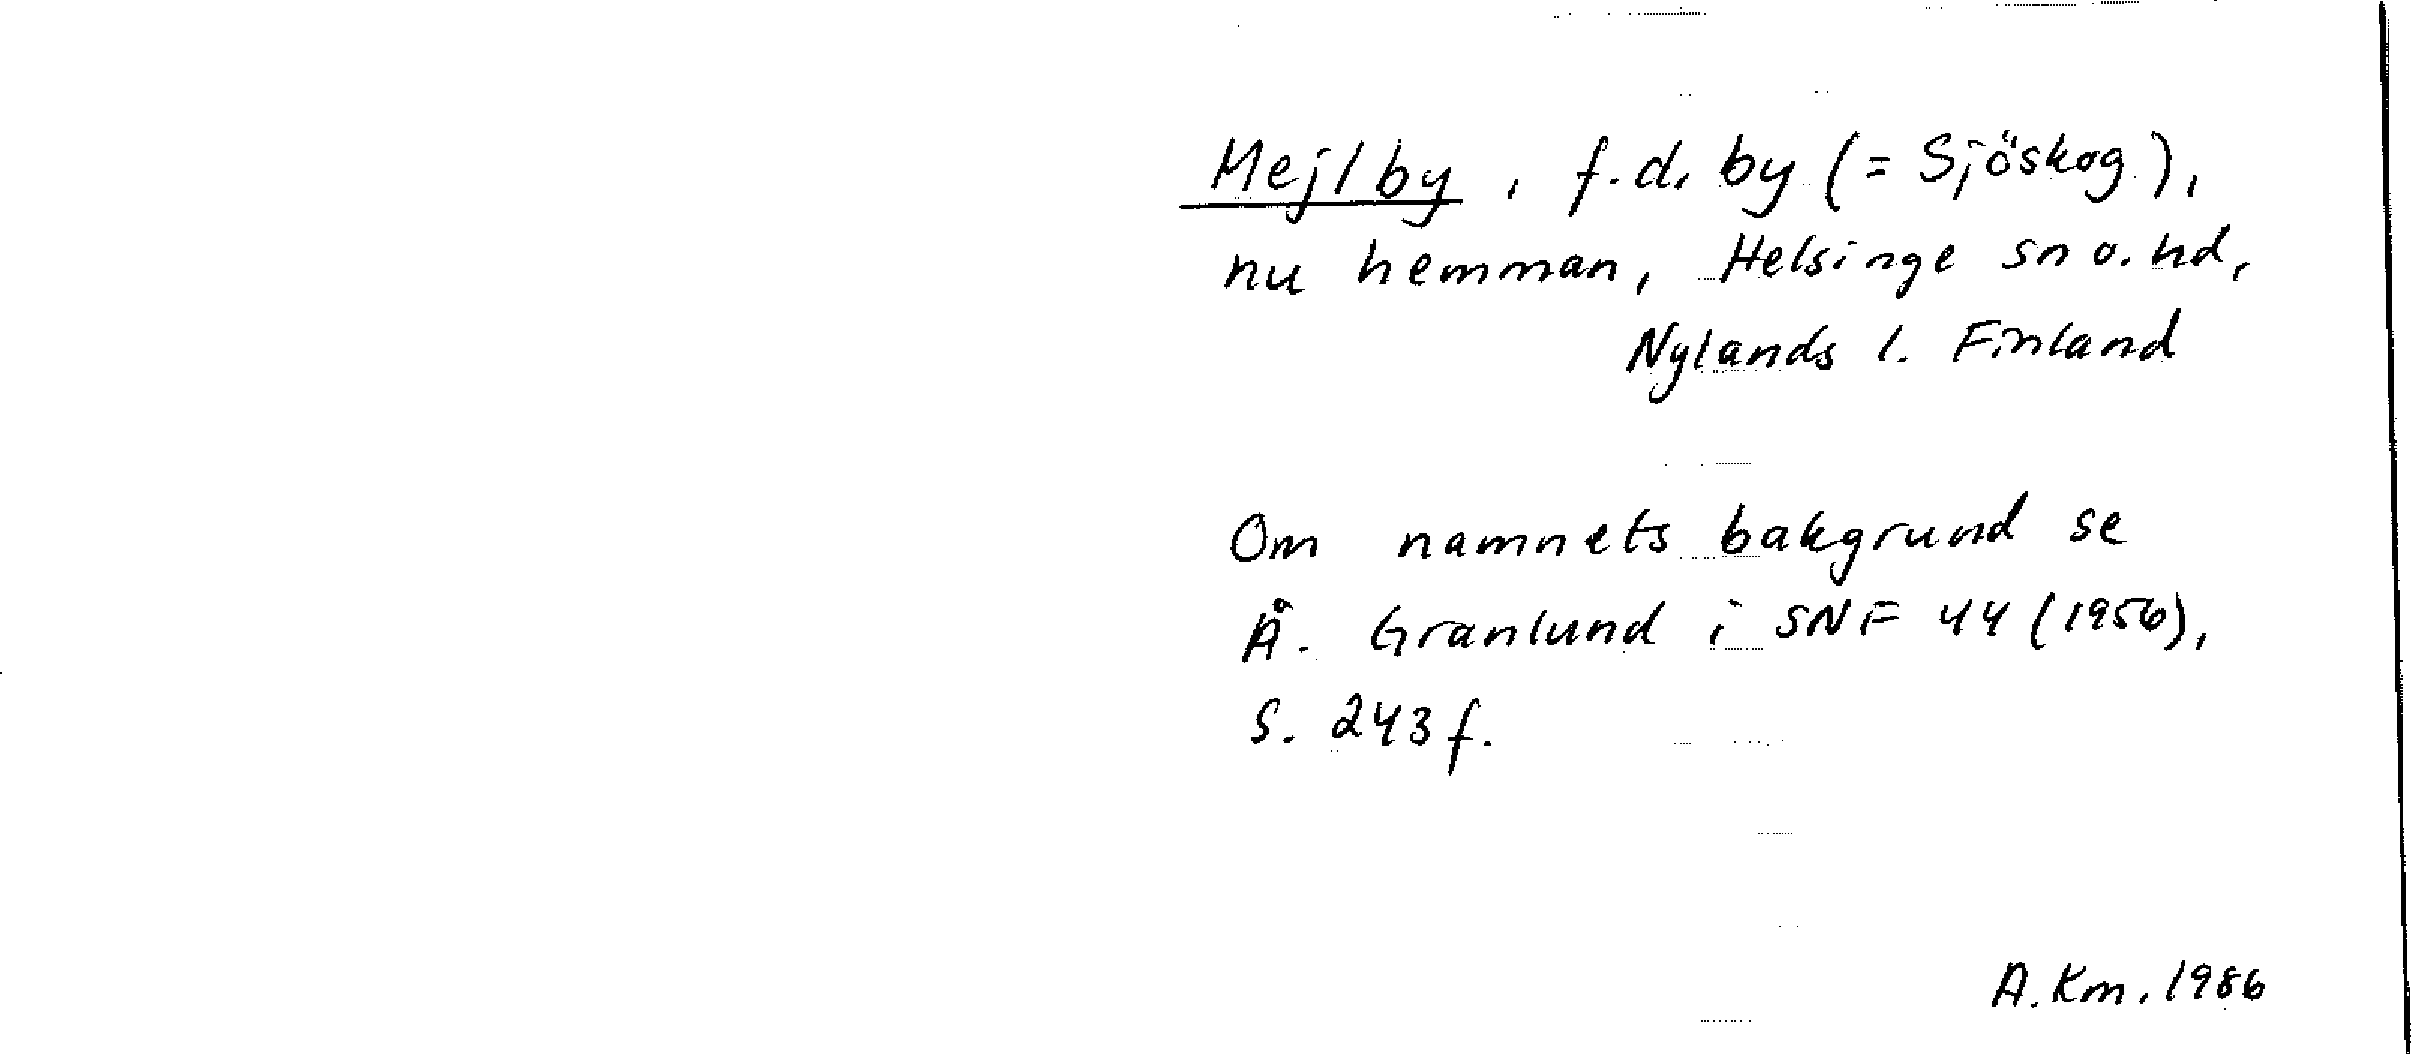 Mejlby, f.d. by (= Sjöskog),
nu hemman, Helsinge sn o. hd,
Nylands l. Finland
Om namnets bakgrund se
Å. Granlund i SNF 44 (1956),
S. 243 f.
A. Km. 1986